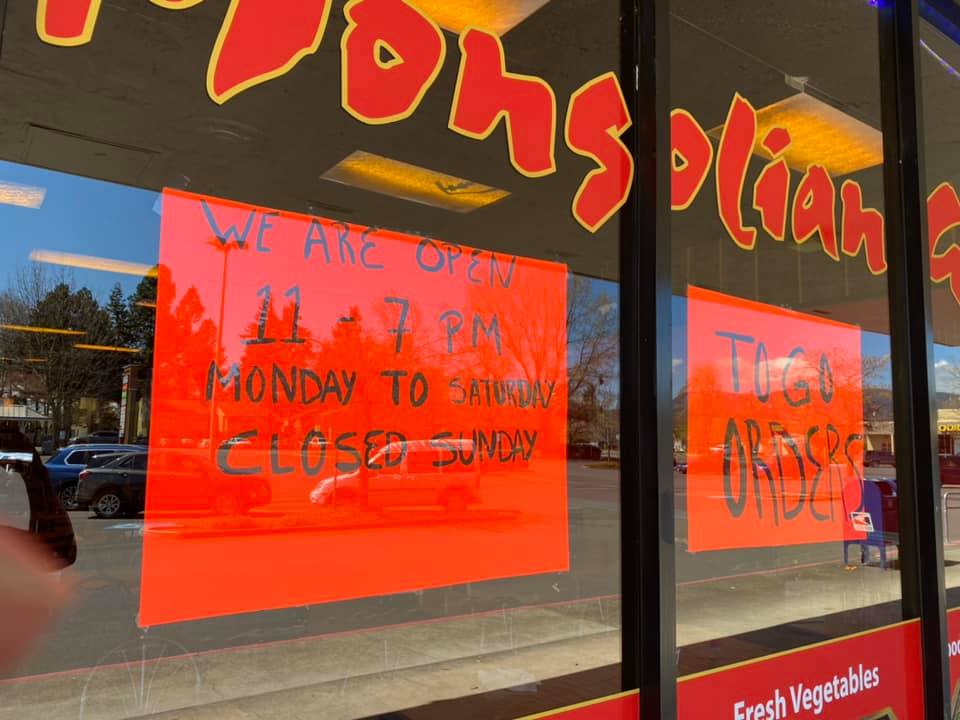 Mongolian G
WE ARE OPEN
11 - 7 PM
MONDAY TO SATURDAY
CLOSED SUNDAY
TO GO
ORDERS
Fresh Vegetables